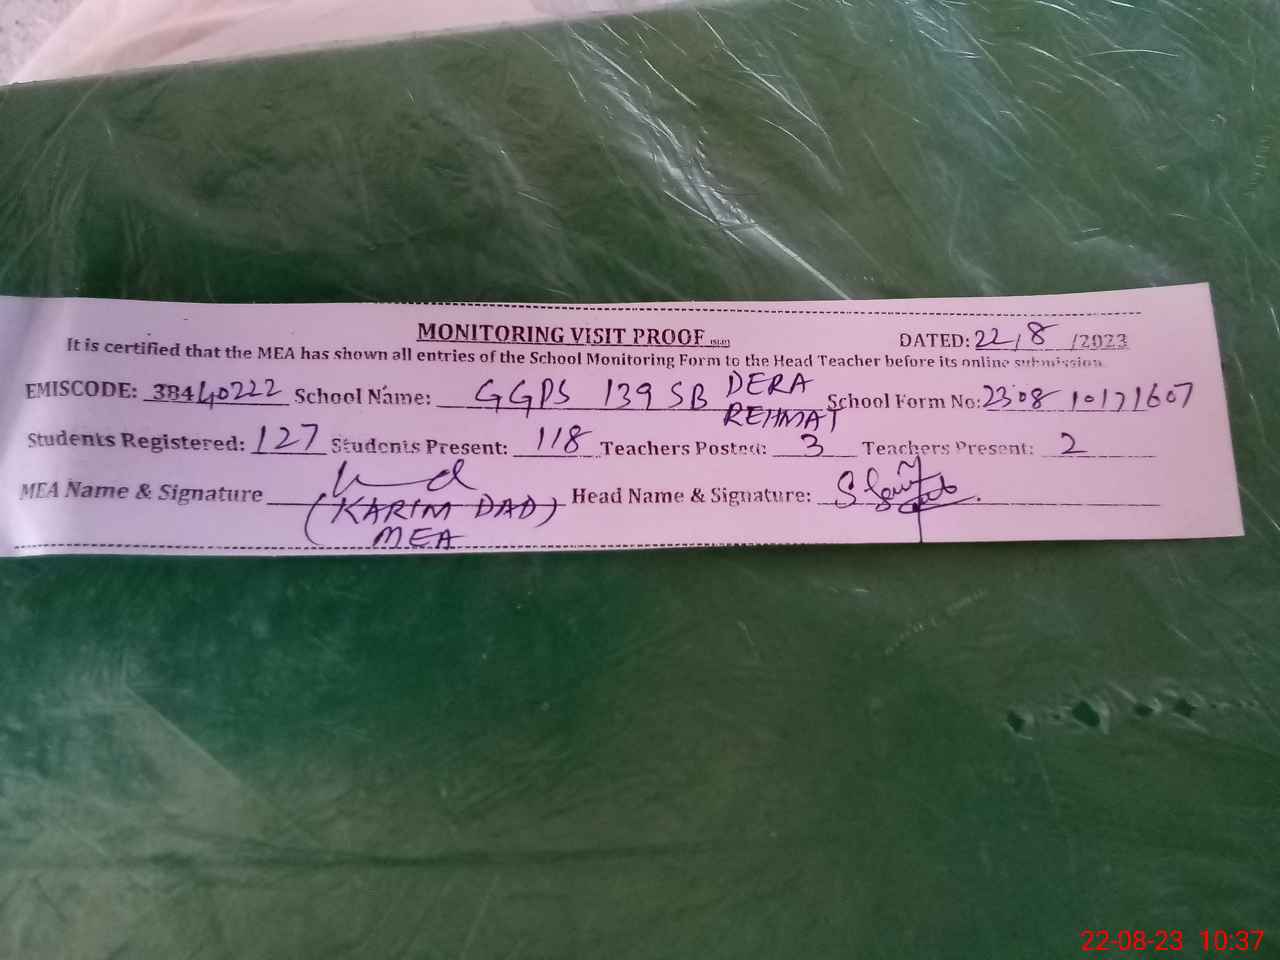 MONITORING VISIT PROOF
DATED: 22/8/2023
It is certified that the MEA has shown all entries of the School Monitoring Form to the Head Teacher before its online submission.
EMISCODE: 38440222 School Name: GGPS 139 SB DERA REHMAT School Form No: 2308 10171607
Students Registered: 127 Students Present: 118 Teachers Posted: 3 Teachers Present: 2
MEA Name & Signature Head Name & Signature:
(KARIM DAD)
MEA
22-08-23 10:37